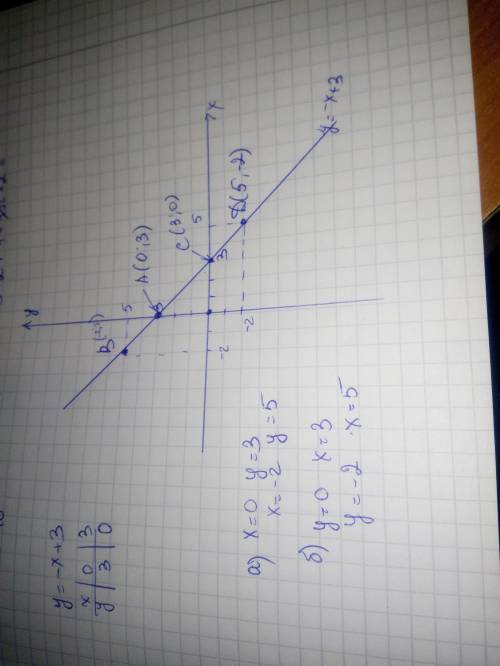 y = -x+3
x | 0 | 3
y | 3 | 0
а) x=0 y=3
x=-2 y=5
б) y=0 x=3
y=-2 x=5
y
5
A(0;3)
3
C(3;0)
5
x
3
-2
-2
D(5;-2)
y=-x+3